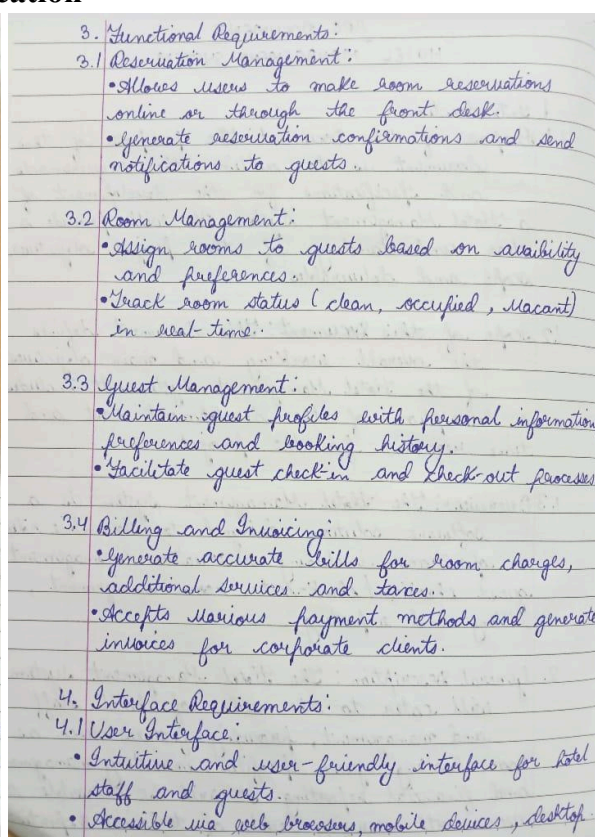 cation
3. Functional Requirements:
3.1 Reservation Management:
• Allows users to make room reservations
online or through the front desk.
• Generate reservation confirmations and send
notifications to guests.
3.2 Room Management:
• Assign rooms to guests based on avaibility
and preferences.
• Track room status (clean, occupied, vacant)
in real-time.
3.3 Guest Management:
• Maintain guest profiles with personal information
preferences and booking history.
• Facilitate guest check-in and check-out processes
3.4 Billing and Invoicing:
• Generate accurate bills for room charges,
additional services and taxes.
• Accepts various payment methods and generate
invoices for corporate clients.
4. Interface Requirements:
4.1 User Interface:
• Intuitive and user-friendly interface for hotel
staff and guests.
• Accessible via web browsers, mobile devices, desktop